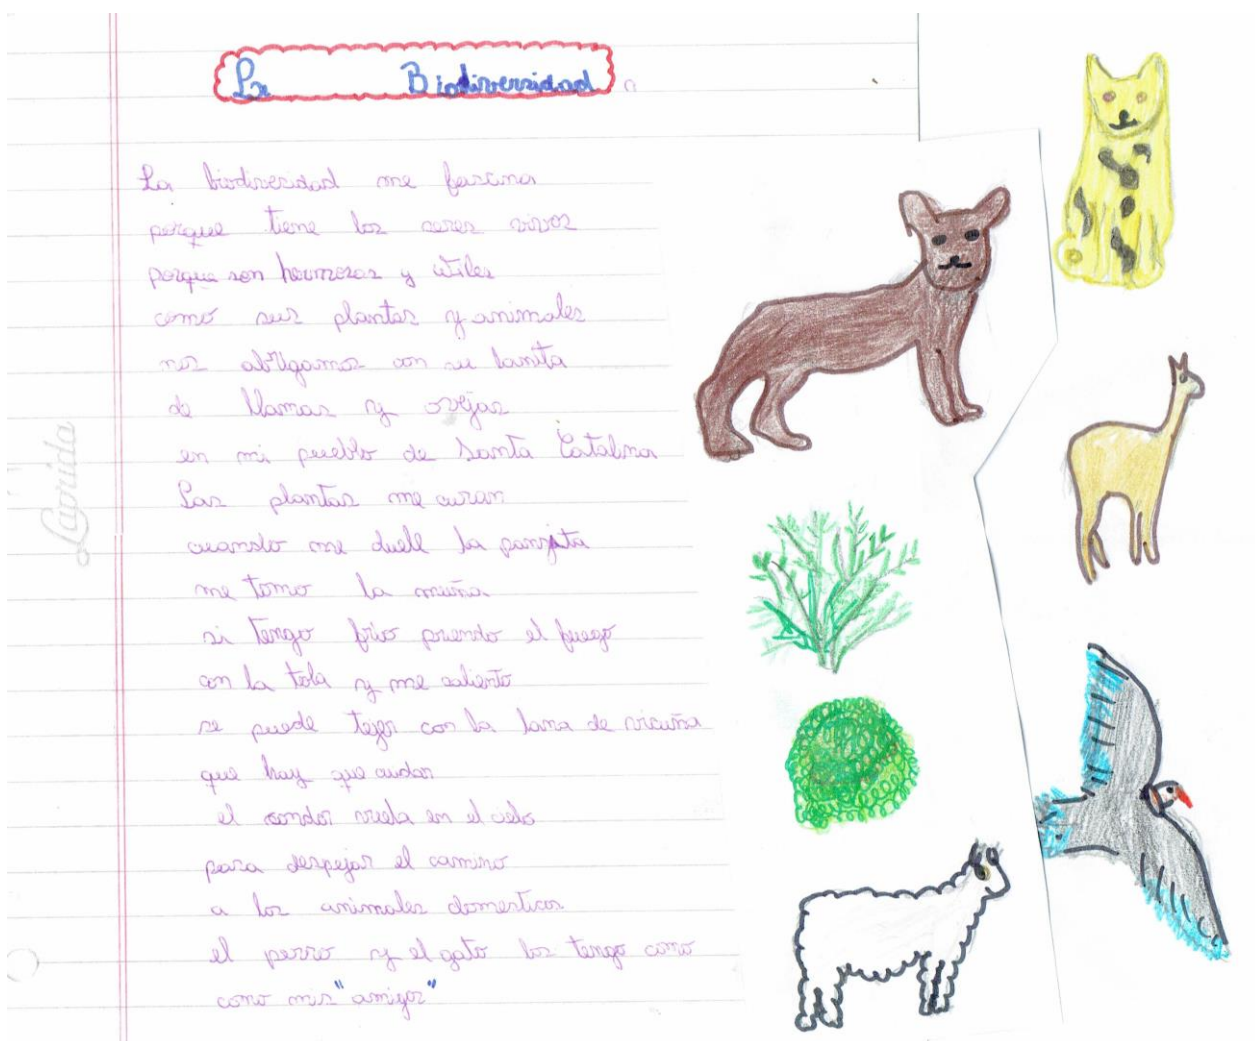 La Biodiversidad
La biodiversidad me fascina
porque tiene los seres vivos
porque son hermosas y utiles
como sus plantas y animales
nos abrigamos con su lanita
de llamas y ovejas
en mi pueblo de Santa Catalina
Las plantas me curan
cuando me duele la panzita
me tomo la muña
si tengo frio prendo el fuego
con la tola y me caliento
se puede tejer con la lana de vicuña
que hay que cuidar
el condor vuela en el cielo
para despejar el camino
a los animales domesticos
el perro y el gato los tengo como
como mis "amigos"
Laprida